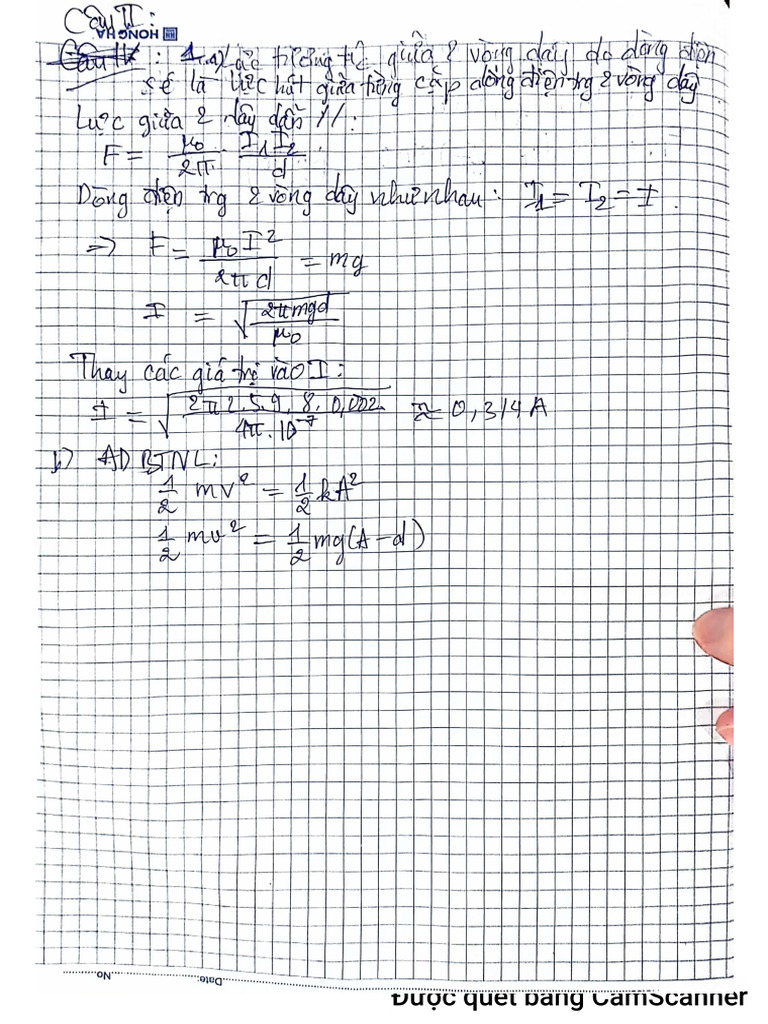 Câu II:
HONG HA
Câu II: 1.a) Lực tương tác giữa 2 vòng dây do dòng điện
sẽ là lực hút giữa từng cặp dòng điện trg 2 vòng dây
Lực giữa 2 dây dẫn //:
F = μ₀/2π · I₁I₂/d
Dòng điện trg 2 vòng dây như nhau: I₁ = I₂ = I.
=> F = μ₀I²/2πd = mg
I = √(2πmgd/μ₀)
Thay các giá trị vào I:
I = √(2π2.5.9,8.0,002/4π.10⁻⁷) ≈ 0,314 A
b) AD BTNL:
1/2 mv² = 1/2 kA²
1/2 mv² = 1/2 mg(A-d)
No. Date:
Được quét bằng CamScanner